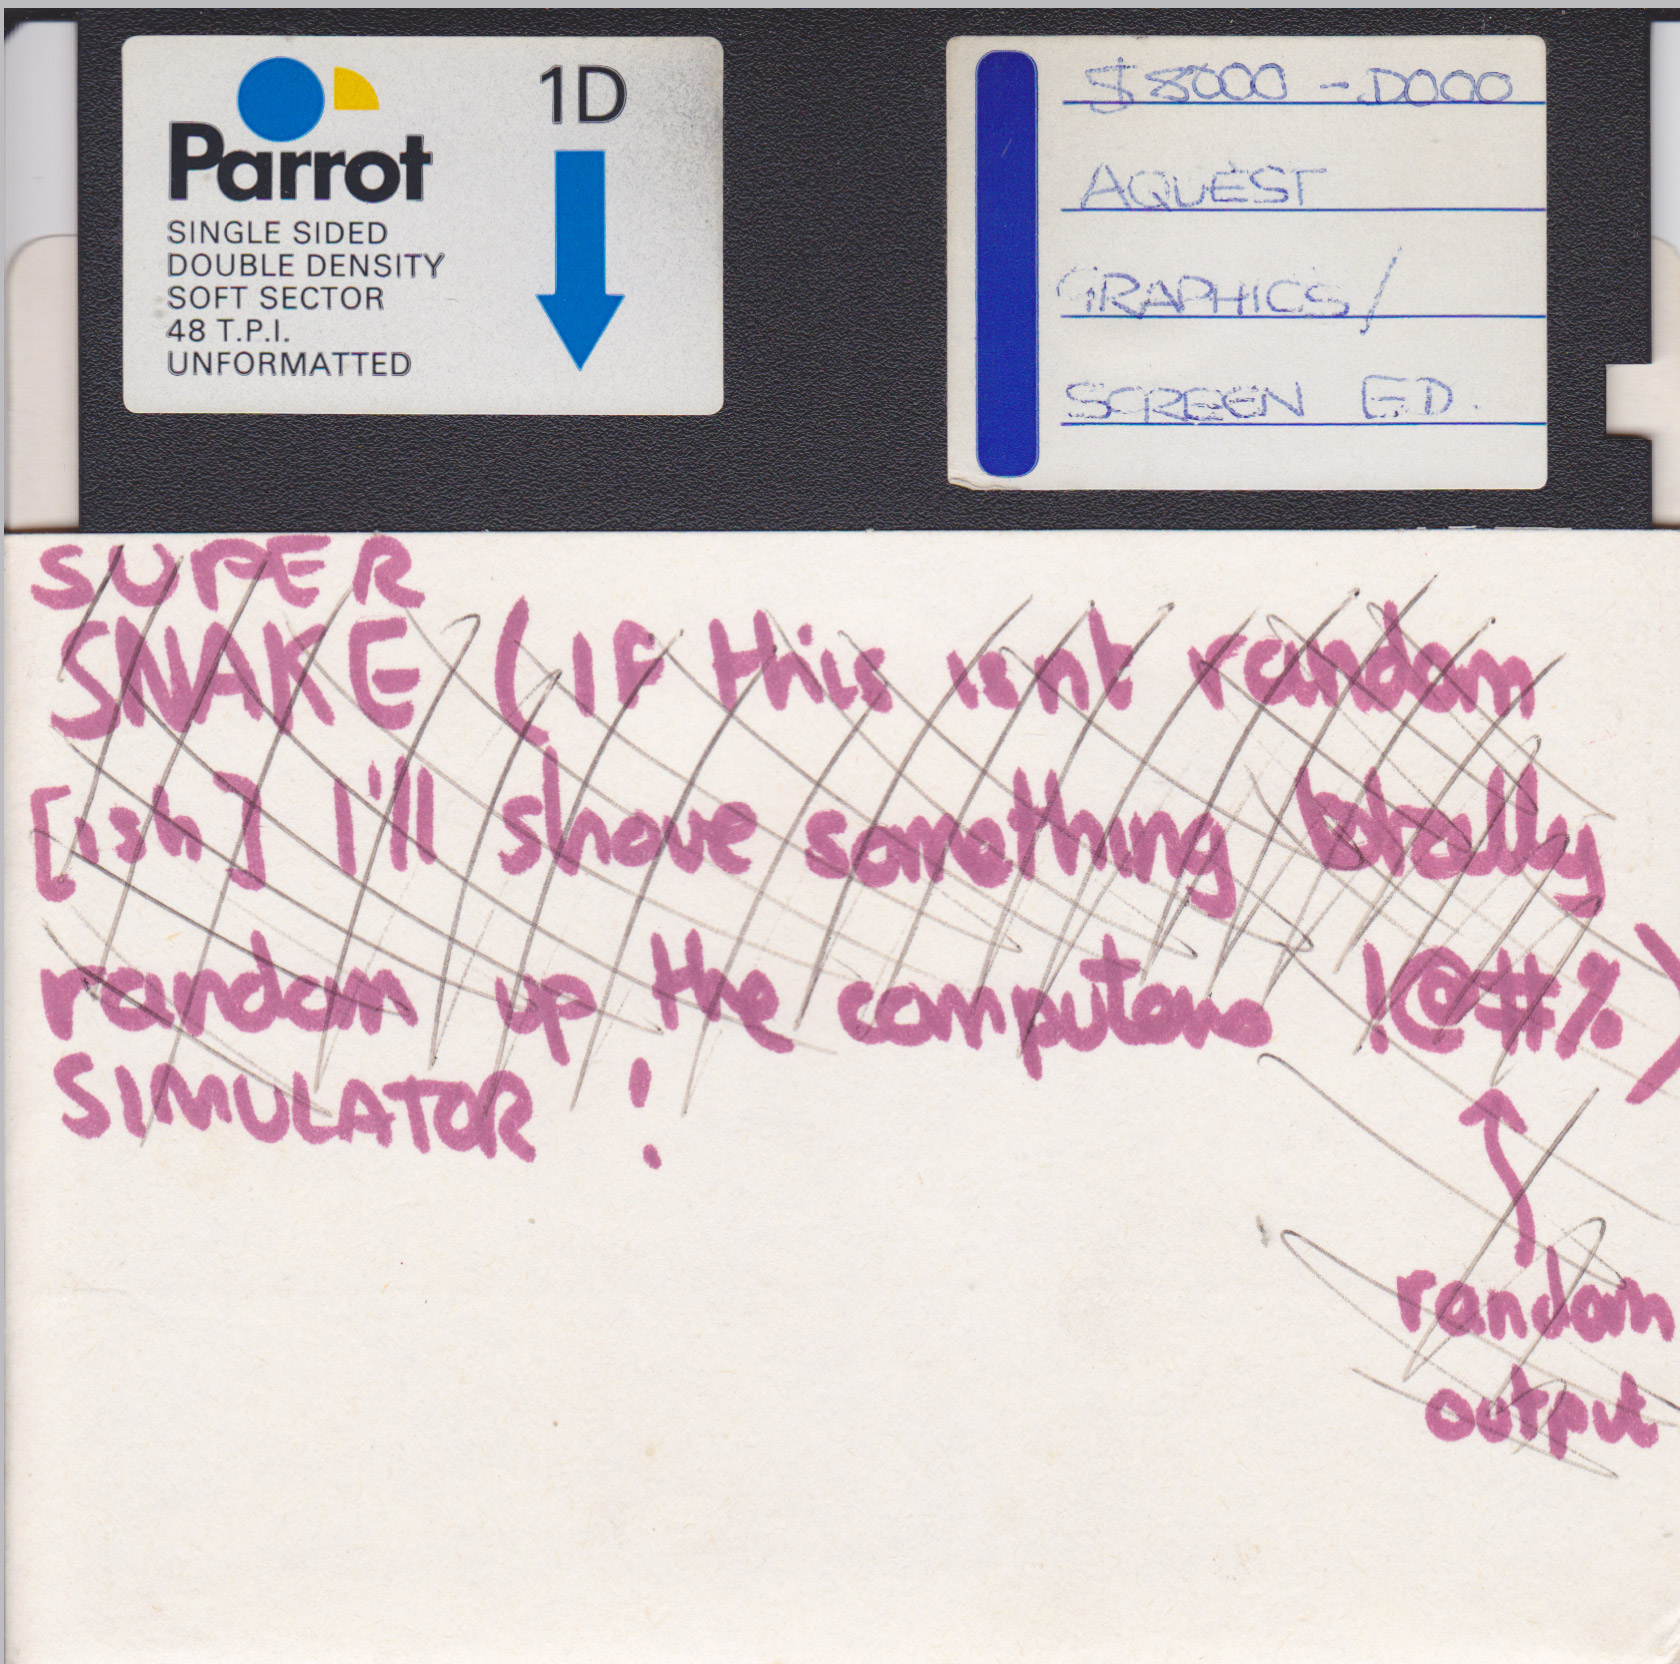 Parrot
1D
SINGLE SIDED
DOUBLE DENSITY
SOFT SECTOR
48 T.P.I.
UNFORMATTED
$8000 - D000
AQUEST
GRAPHICS/
SCREEN ED.
SUPER
SNAKE (IF this isnt random
[ish] I'll shove something totally
random up the computers !@#%)
SIMULATOR !
random
output